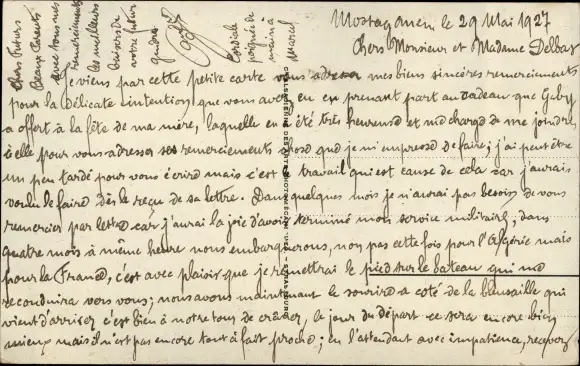 Mostaganem le 29 Mai 1927
Chers Monsieur et Madame Delbay
Je viens par cette petite carte vous adresser mes biens sincères remerciements
pour la délicate intention que vous avez eu en prenant part au cadeau que Gaby
a offert à la fête de ma mère, laquelle en a été très heureuse et me charge de me joindre
à elle pour vous adresser ses remerciements chose que je m'empresse de faire; j'ai peut être
un peu tardé pour vous écrire mais c'est le travail qui est cause de cela car j'aurais
voulu le faire dès le reçu de sa lettre. Dans quelques mois je n'aurai pas besoin de vous
remercier par lettre car j'aurai la joie d'avoir terminé mon service militaire, dans
quatre mois à même heure nous embarquerons, non pas cette fois pour l'Algérie mais
pour la France, c'est avec plaisir que je remettrai le pied sur le bateau qui me
reconduira vers vous; nous avons maintenant le sourire a coté de la bleusaille qui
vient d'arriver c'est bien à notre tour de crâner, le jour du départ ce sera encore bien
mieux mais il n'est pas encore tout à fait proche; en l'attendant avec impatience, recevez
Chers Futurs
Beaux Parents
avec tous mes
remerciements
les meilleurs
baisers de
votre futur
gendre
Cordiale
poignée de
main à
Marcel